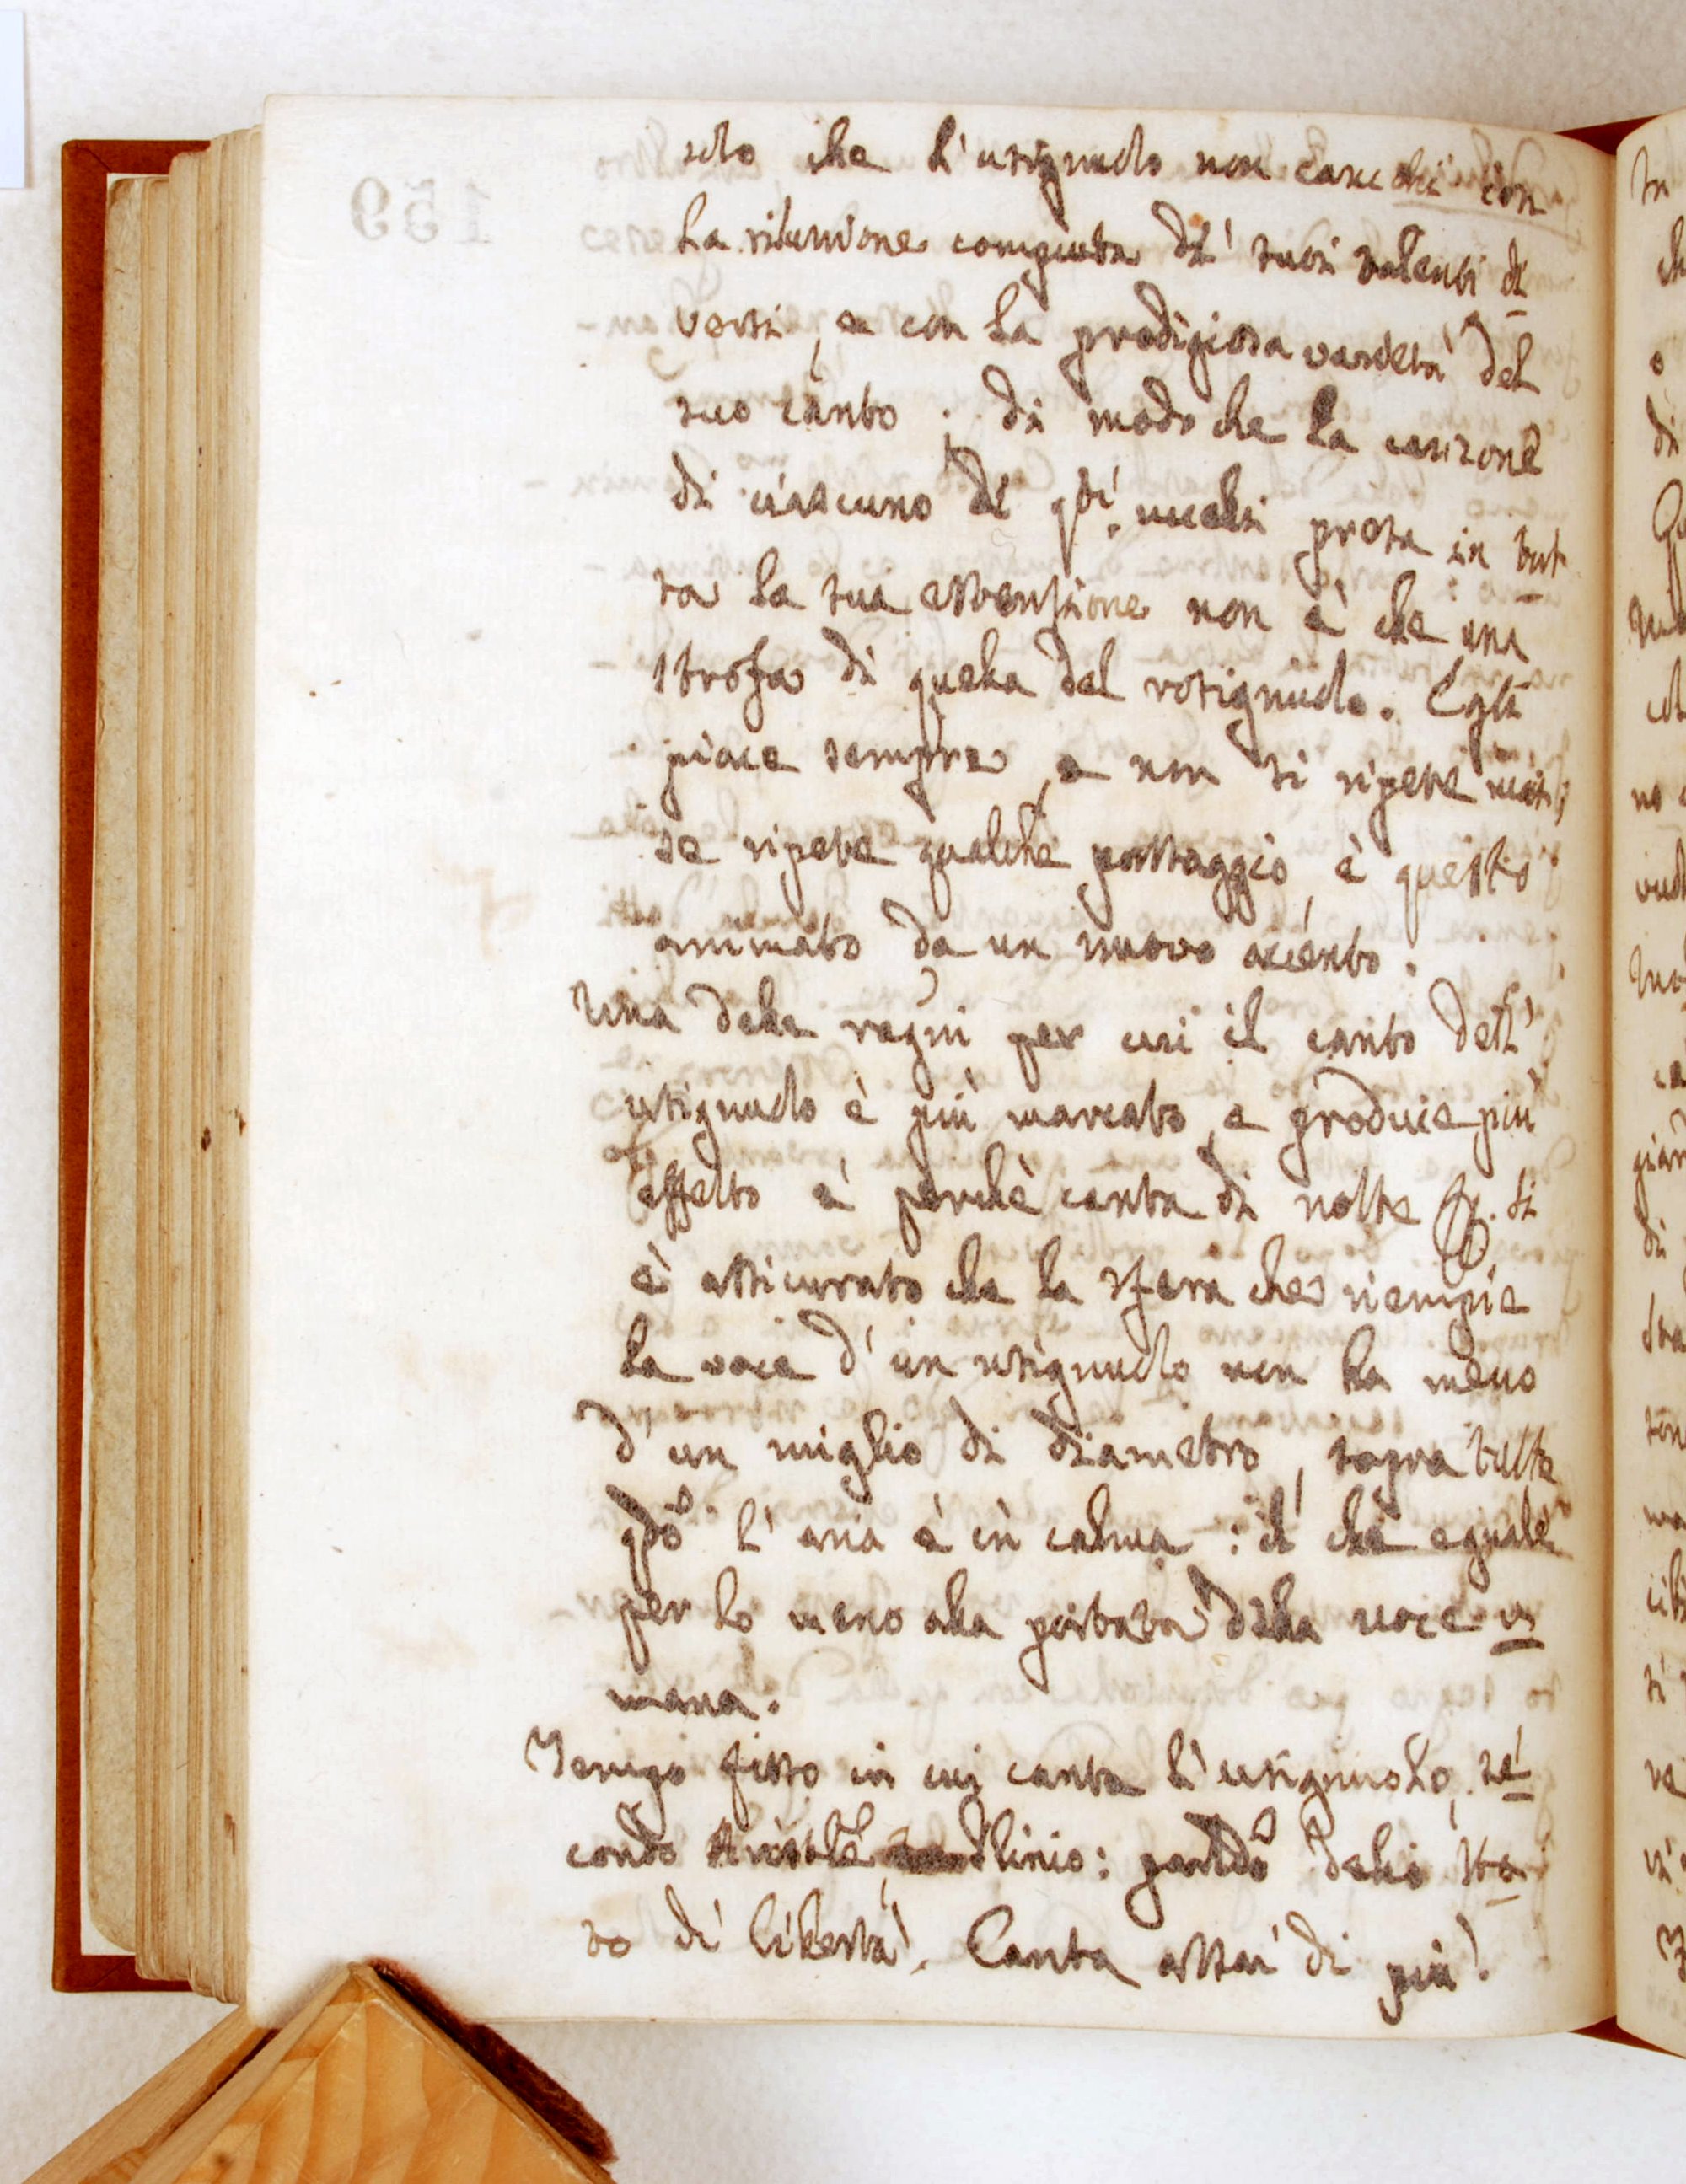 solo che l'usignuolo non con
la riunione compiuta de' suoi talenti di
versi, e con la prodigiosa varietà del
suo canto ; di modo che la canzone
di ciascuno di qti uccelli presa in tut
ta la sua estensione non è che una
strofa di quella del rosignuolo. Egli
piace sempre, e non si ripete mai,
se ripete qualche passaggio, è questo
animato da un nuovo accento.
Una delle ragni per cui il canto dell'
usignuolo è più marcato, e produce più
effetto è perchè canta di notte si
è assicurato che la sfera che riempie
la voce d'un usignuolo non ha meno
d'un miglio di diametro, sopra tutto
qdo l'aria è in calma : il che eguale
per lo meno alla portata della voce u
mana.
Tempo fisso in cui canta l'usignuolo, se
condo Aristle, Plinio: parldo dello sta
to di libertà. Canta assai di più.
159